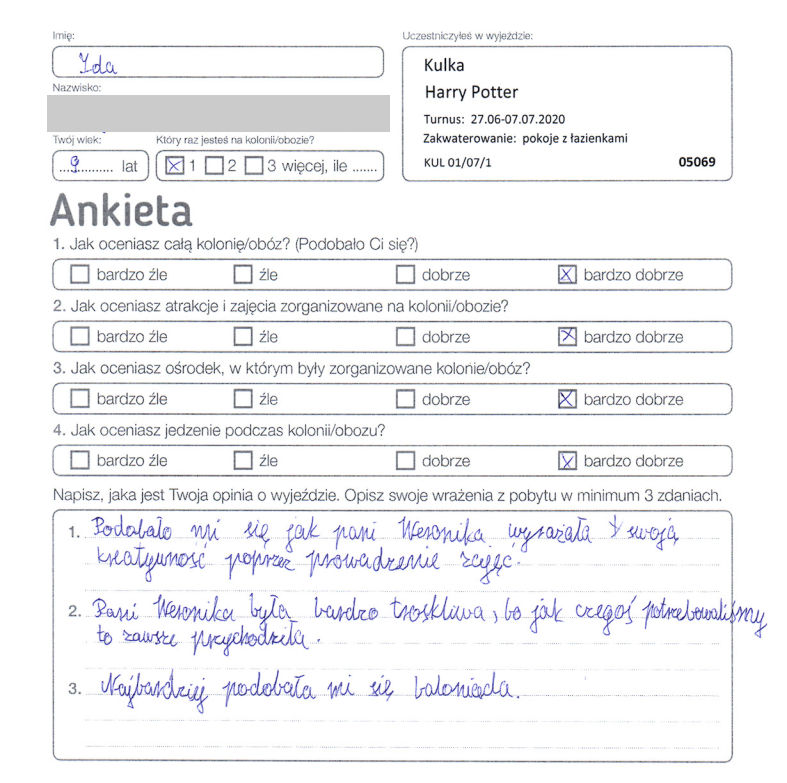 Imię:
Uczestniczyłeś w wyjeździe:
Ida
Kulka
Harry Potter
Turnus: 27.06-07.07.2020
Zakwaterowanie: pokoje z łazienkami
KUL 01/07/1 05069
Nazwisko:
Twój wiek:
Który raz jesteś na kolonii/obozie?
...9.......... lat
1 2 3 więcej, ile .......
Ankieta
1. Jak oceniasz całą kolonię/obóz? (Podobało Ci się?)
bardzo źle źle dobrze bardzo dobrze
2. Jak oceniasz atrakcje i zajęcia zorganizowane na kolonii/obozie?
bardzo źle źle dobrze bardzo dobrze
3. Jak oceniasz ośrodek, w którym były zorganizowane kolonie/obóz?
bardzo źle źle dobrze bardzo dobrze
4. Jak oceniasz jedzenie podczas kolonii/obozu?
bardzo źle źle dobrze bardzo dobrze
Napisz, jaka jest Twoja opinia o wyjeździe. Opisz swoje wrażenia z pobytu w minimum 3 zdaniach.
1. Podobało mi się jak pani Weronika wyrażała swoją
kreatywność poprzez prowadzenie zajęć.
2. Pani Weronika była bardzo troskliwa, bo jak czegoś potrzebowaliśmy
to zawsze przychodziła.
3. Najbardziej podobała mi się baloniada.